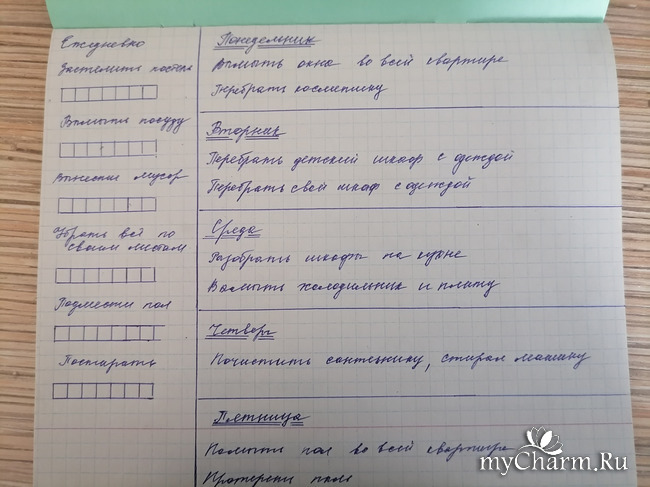 Ежедневно
Застелить постель
Вымыть посуду
Вынести мусор
Убрать всё по
своим местам
Подмести пол
Постирать
Понедельник
Вымыть окна во всей квартире
Перебрать косметику
Вторник
Перебрать детский шкаф с одеждой
Перебрать свой шкаф с одеждой
Среда
Разобрать шкафы на кухне
Вымыть холодильник и плиту
Четверг
Почистить сантехнику, стирал машину
Пятница
Помыть пол во всей квартире
Протереть
myCharm.Ru